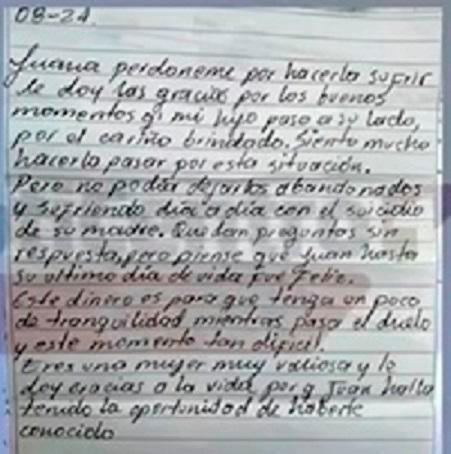 08-24.
Juana perdoneme por hacerla sufrir
le doy las gracias por los buenos
momentos q' mi hijo paso a su lado,
por el cariño brindado. Siento mucho
hacerla pasar por esta situación.
Pero no podia dejarlos abandonados
y sufriendo dia a dia con el suicidio
de su madre. Quedan preguntas sin
respuesta, pero piense que Juan hasta
su ultimo dia de vida fue Feliz.
Este dinero es para que tenga un poco
de tranquilidad mientras pasa el duelo
y este momento tan dificil.
Eres una mujer muy valiosa y le
doy gracias a la vida por q Juan halla
tenido la oportunidad de haberte
conocido